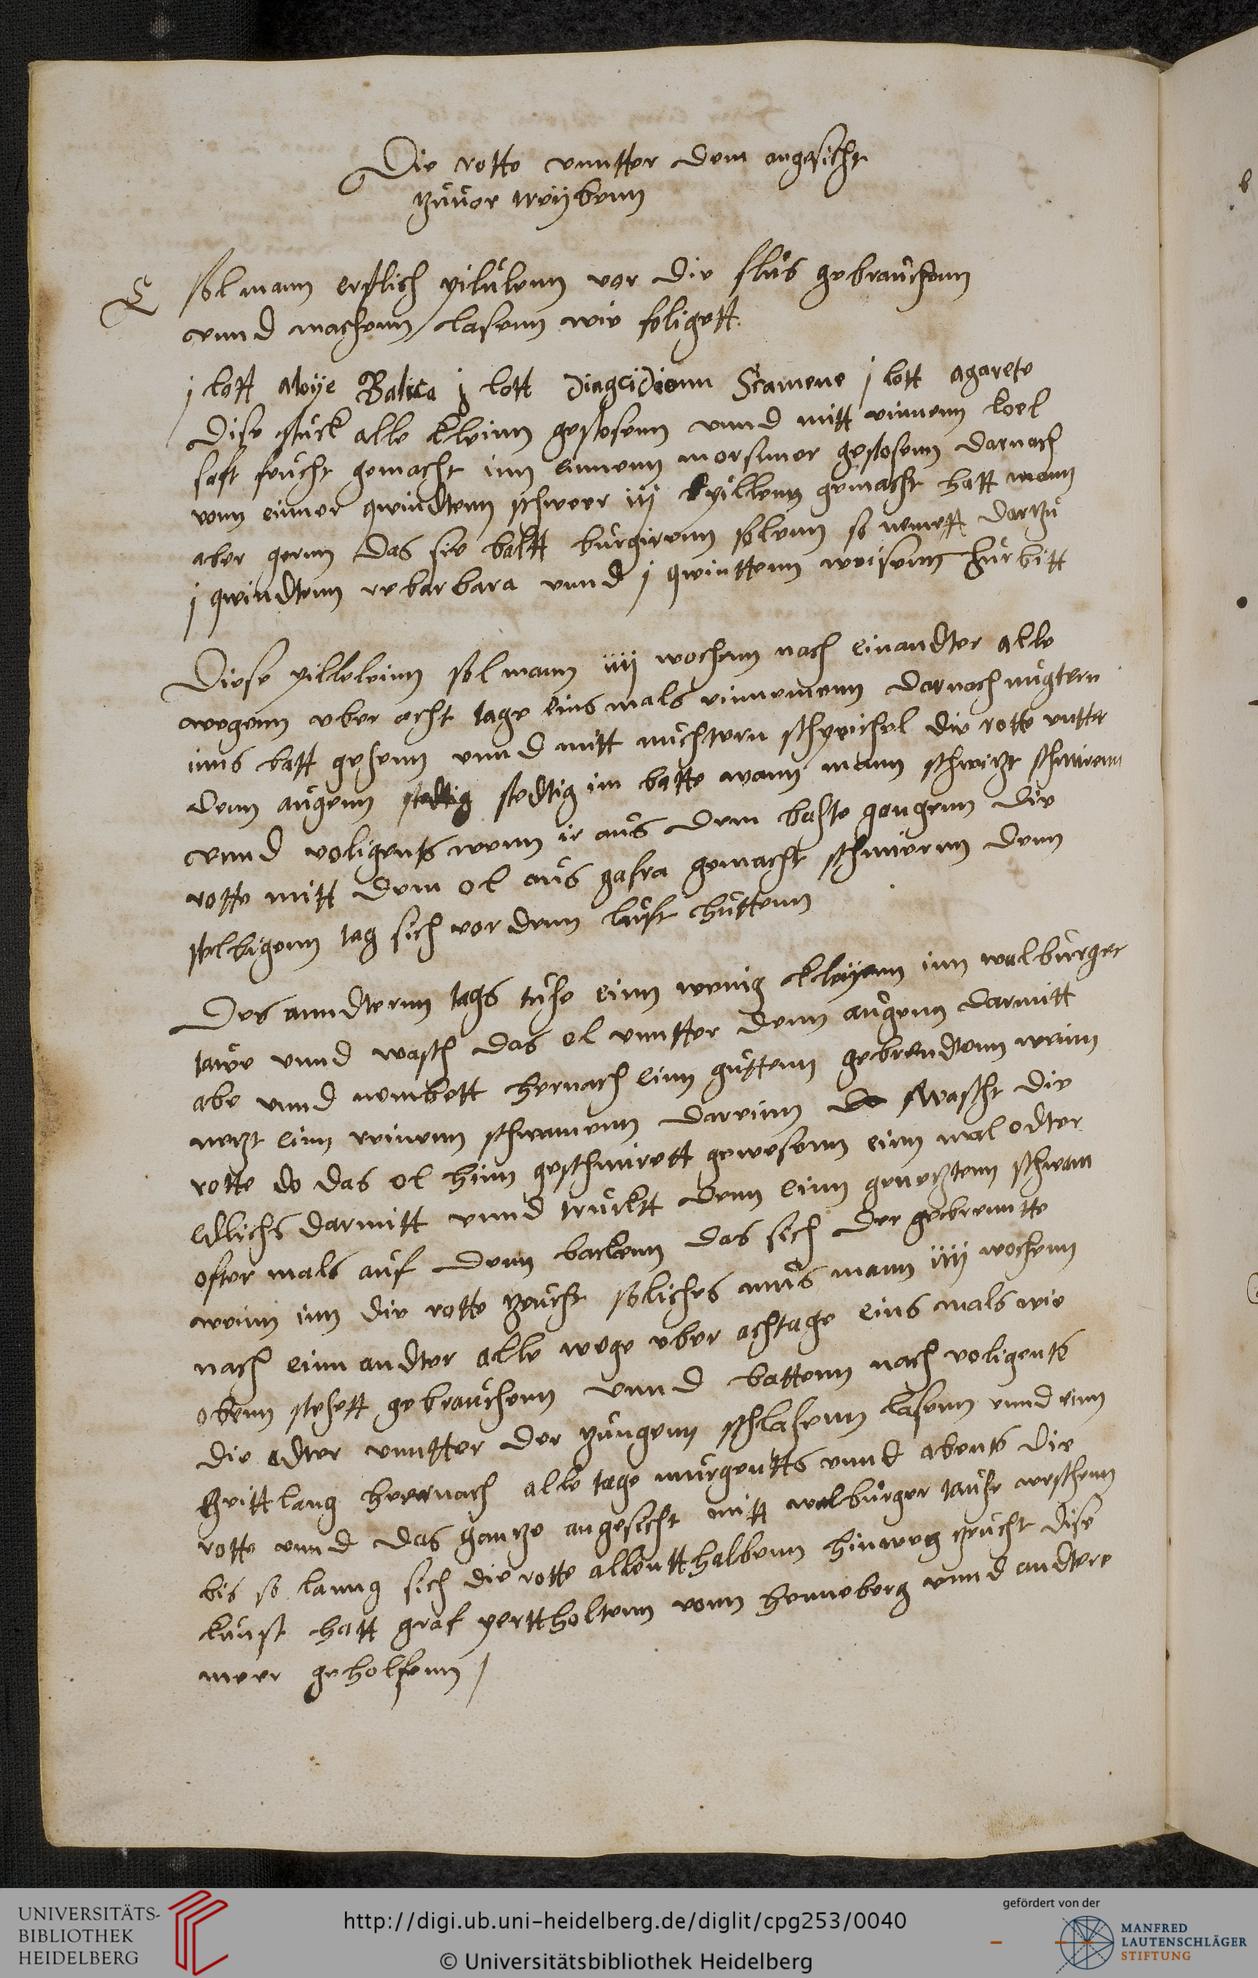 Die rotte vnntter dem angesicht
zuuor treÿbenn
E sol mann erstlich pilulenn vor die flus gebrauchenn
vnnd machenn lasenn wie foligett
j lott aloÿe Batica j lott diagridionn Scamene j lott agarete
Dise stuck alle kleinn gestosenn vnnd mitt einnem koel
saft feucht gemacht inn einnem morsner gestosenn darnach
vonn einner qwindtenn schwer iij pillenn gemacht hatt mann
aber gernn das sie baltt burgirenn solenn so nemett dartzu
j qwindtenn rebarbara vnnd j qwinttenn weisenn turbitt
Diese pilleleinn sol mann iiij wochenn nach einandter alle
wegenn vber acht tage eins mals einnemenn darnach nugtern
inns batt gehenn vnnd mitt nuchtern speichel die rotte vntter
denn augenn stedtig im batte wann mann schwitzt schmirenn
vnnd voligents wenn ir aus dem bahte gangenn die
rotte mitt dem ol aus gafra gemacht schmirenn denn
selbigenn tag sich vor denn luft huttenn
Des anndternn tags tuhe einn wenig kleÿenn inn walburger
tawe vnnd wasch das ol vnntter denn augenn darmitt
abe vnnd nembett hernach einn guttenn gebrendtenn weinn
netzt einn reinenn schwamenn dareinn wascht die
rotte do das ol hinn geschmirett gewesenn einn mal odter
edlichs darmitt vnnd truckt denn einn genetztenn schwam
ofter mals auf denn backenn das sich der gebrenntte
weinn inn die rotte zeucht soliches mus mann iiij wochenn
nach einn andter alle wege vber achtage eins mals wie
obenn stehett gebrauchenn vnnd battenn nach voligents
die adter vnntter der zungenn schlahenn lasenn vnnd einn
zeitt lang heernach alle tage murgentts vnnd abents die
rotte vnnd das gantze angesicht mitt walburger tauhe weschenn
bis so lanng sich die rotte allentthalbenn hinweg zeucht dise
kunst hatt graf perttholtenn vonn henneberg vnnd andtere
meer geholfenn /
UNIVERSITÄTS-
BIBLIOTHEK
HEIDELBERG
http://digi.ub.uni-heidelberg.de/diglit/cpg253/0040
© Universitätsbibliothek Heidelberg
gefördert von der
MANFRED
LAUTENSCHLÄGER
STIFTUNG